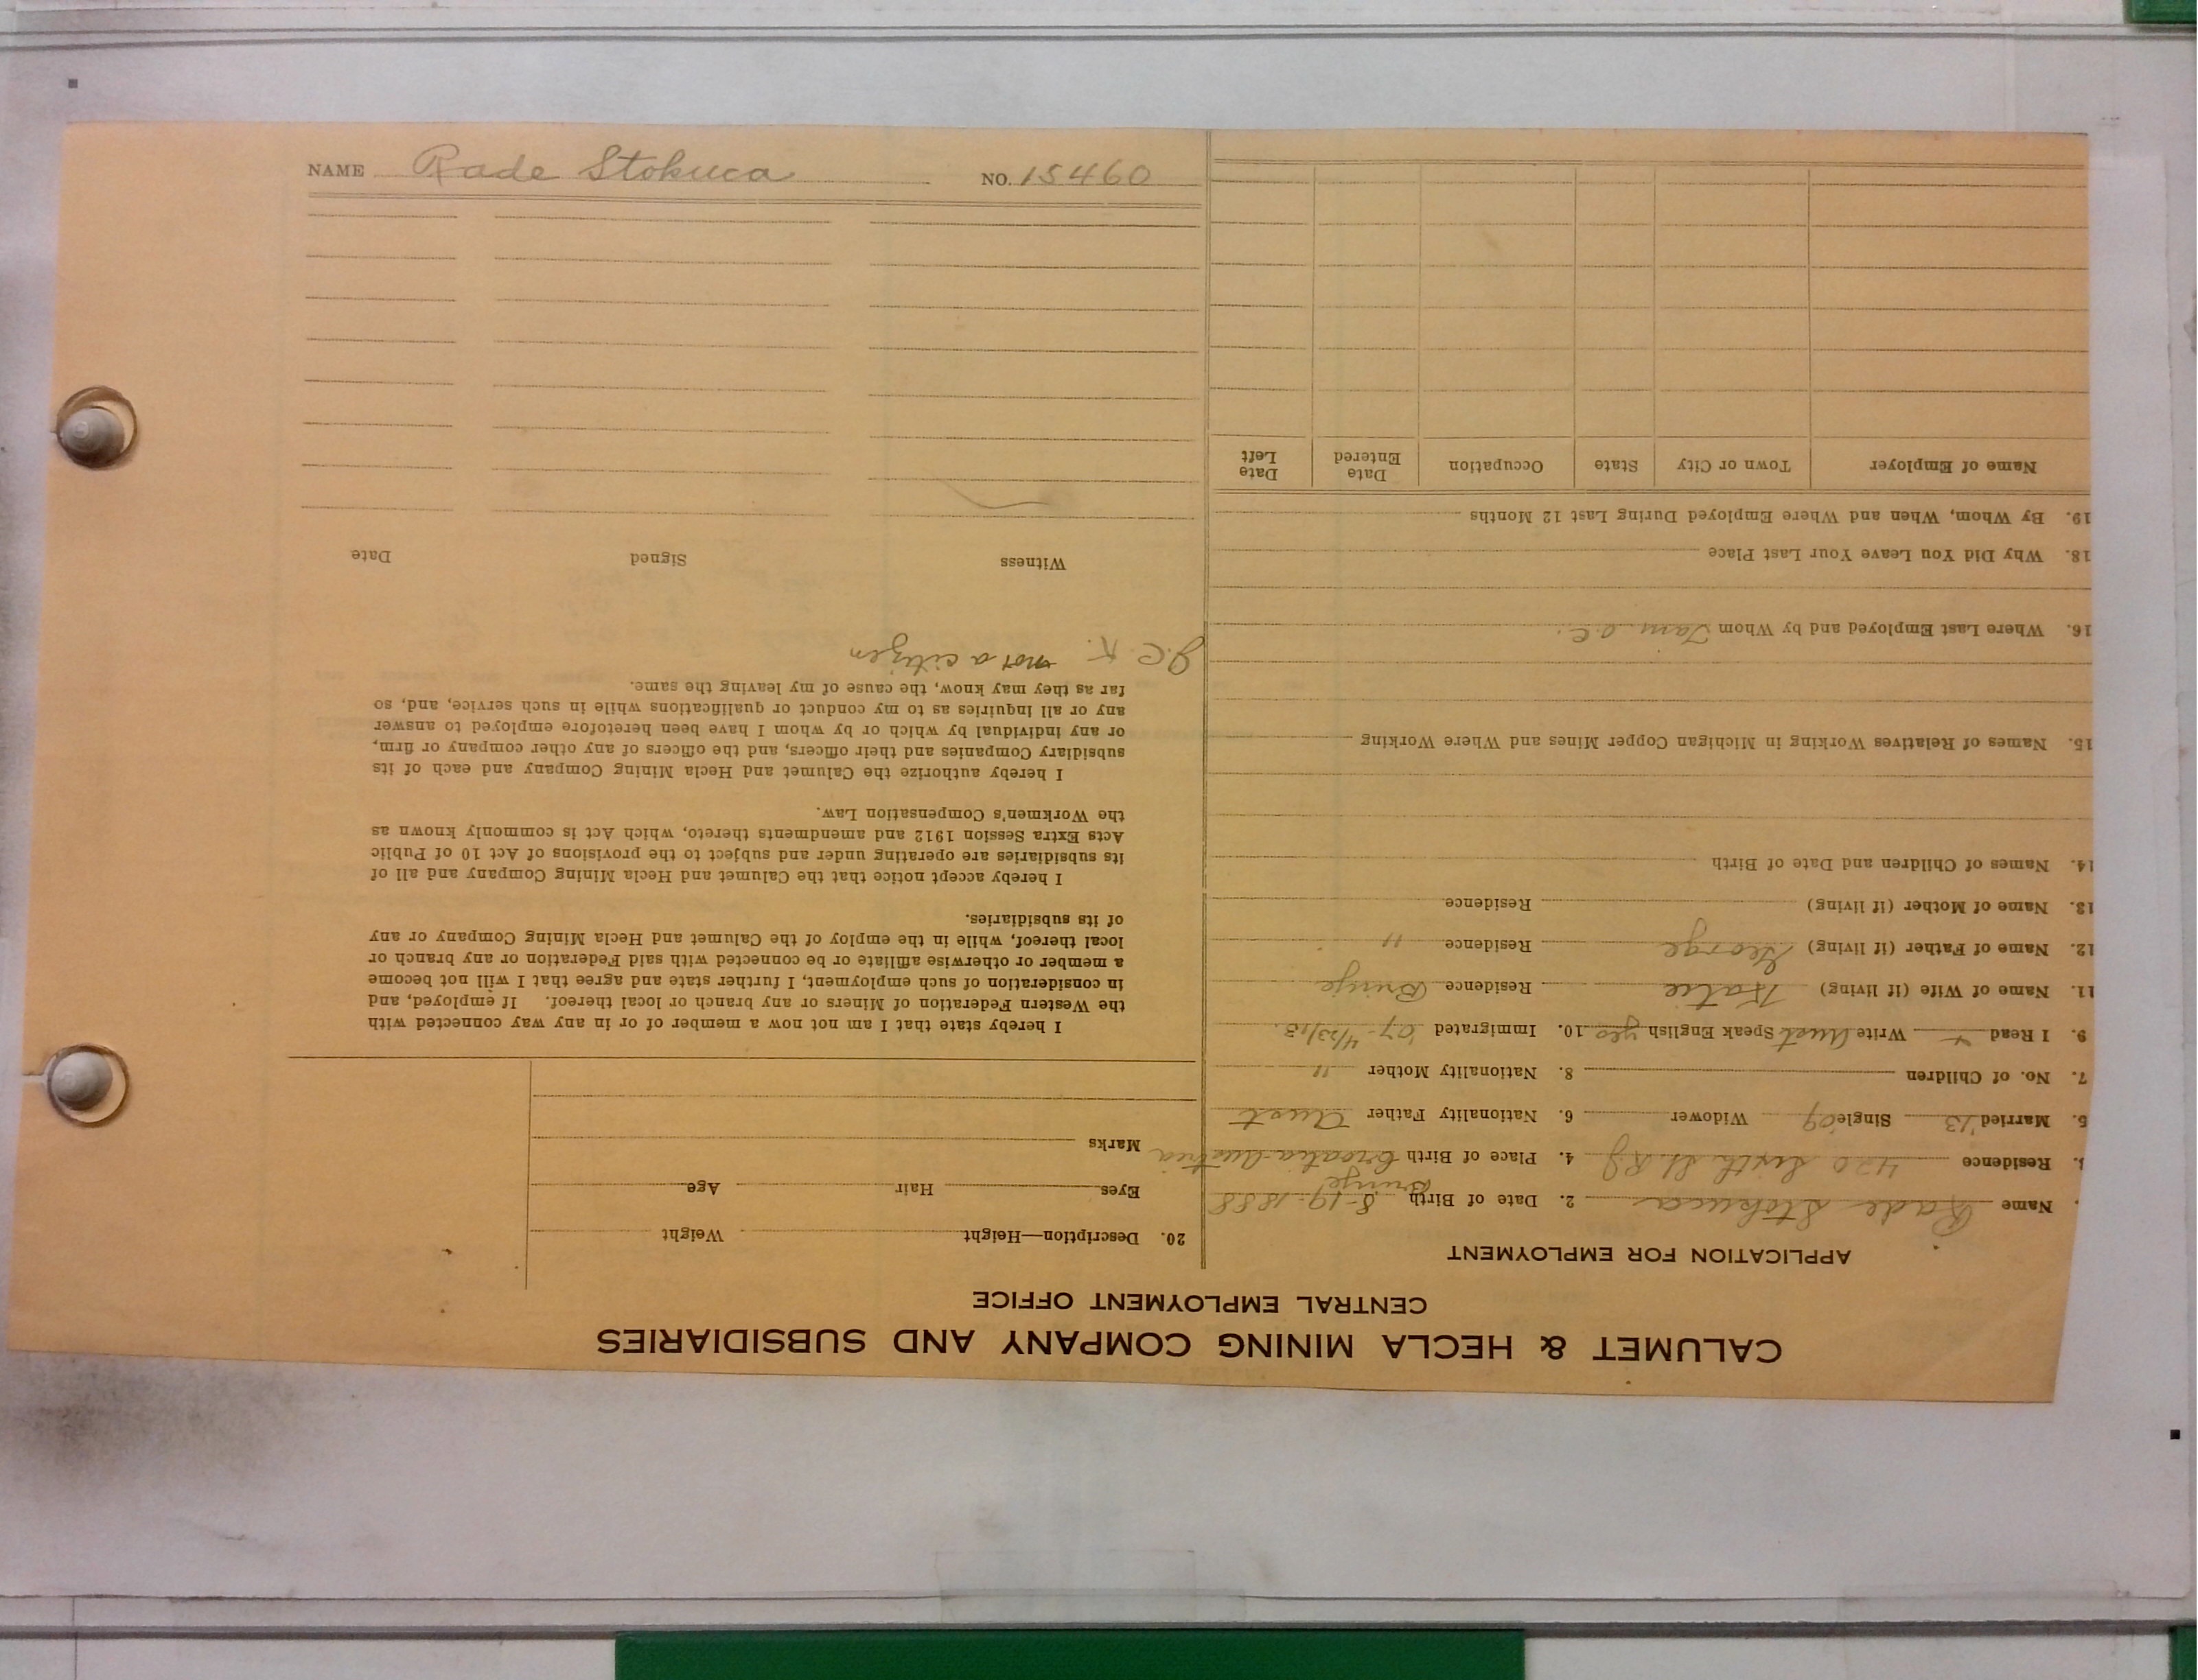 NAME Rade Stokuca NO. 15460
CALUMET & HECLA MINING COMPANY AND SUBSIDIARIES
CENTRAL EMPLOYMENT OFFICE
APPLICATION FOR EMPLOYMENT
Name Rade Stokuca 2. Date of Birth 8-19-1888
Residence 420 Sixth St. 4. Place of Birth Brinje Croatia Austria
5. Married '13 Single '09 Widower 6. Nationality Father Aust
7. No. of Children 8. Nationality Mother "
9. I Read Write Aust Speak English yes 10. Immigrated '07 - 4/23/13.
11. Name of Wife (if living) Katie Residence Brinje
12. Name of Father (if living) George Residence "
13. Name of Mother (if living) Residence
14. Names of Children and Date of Birth
15. Names of Relatives Working in Michigan Copper Mines and Where Working
16. Where Last Employed and by Whom
18. Why Did You Leave Your Last Place
19. By Whom, When and Where Employed During Last 12 Months
Name of Employer Town or City State Occupation Date Entered Date Left
20. Description—Height Weight
Eyes Hair Age
Marks
I hereby state that I am not now a member of or in any way connected with
the Western Federation of Miners or any branch or local thereof. If employed, and
in consideration of such employment, I further state and agree that I will not become
a member or otherwise affiliate or be connected with said Federation or any branch or
local thereof, while in the employ of the Calumet and Hecla Mining Company or any
of its subsidiaries.
I hereby accept notice that the Calumet and Hecla Mining Company and all of
its subsidiaries are operating under and subject to the provisions of Act 10 of Public
Acts Extra Session 1912 and amendments thereto, which Act is commonly known as
the Workmen's Compensation Law.
I hereby authorize the Calumet and Hecla Mining Company and each of its
subsidiary Companies and their officers, and the officers of any other company or firm,
or any individual by which or by whom I have been heretofore employed to answer
any or all inquiries as to my conduct or qualifications while in such service, and, so
far as they may know, the cause of my leaving the same.
J.C.K. not a citizen
Witness Signed Date